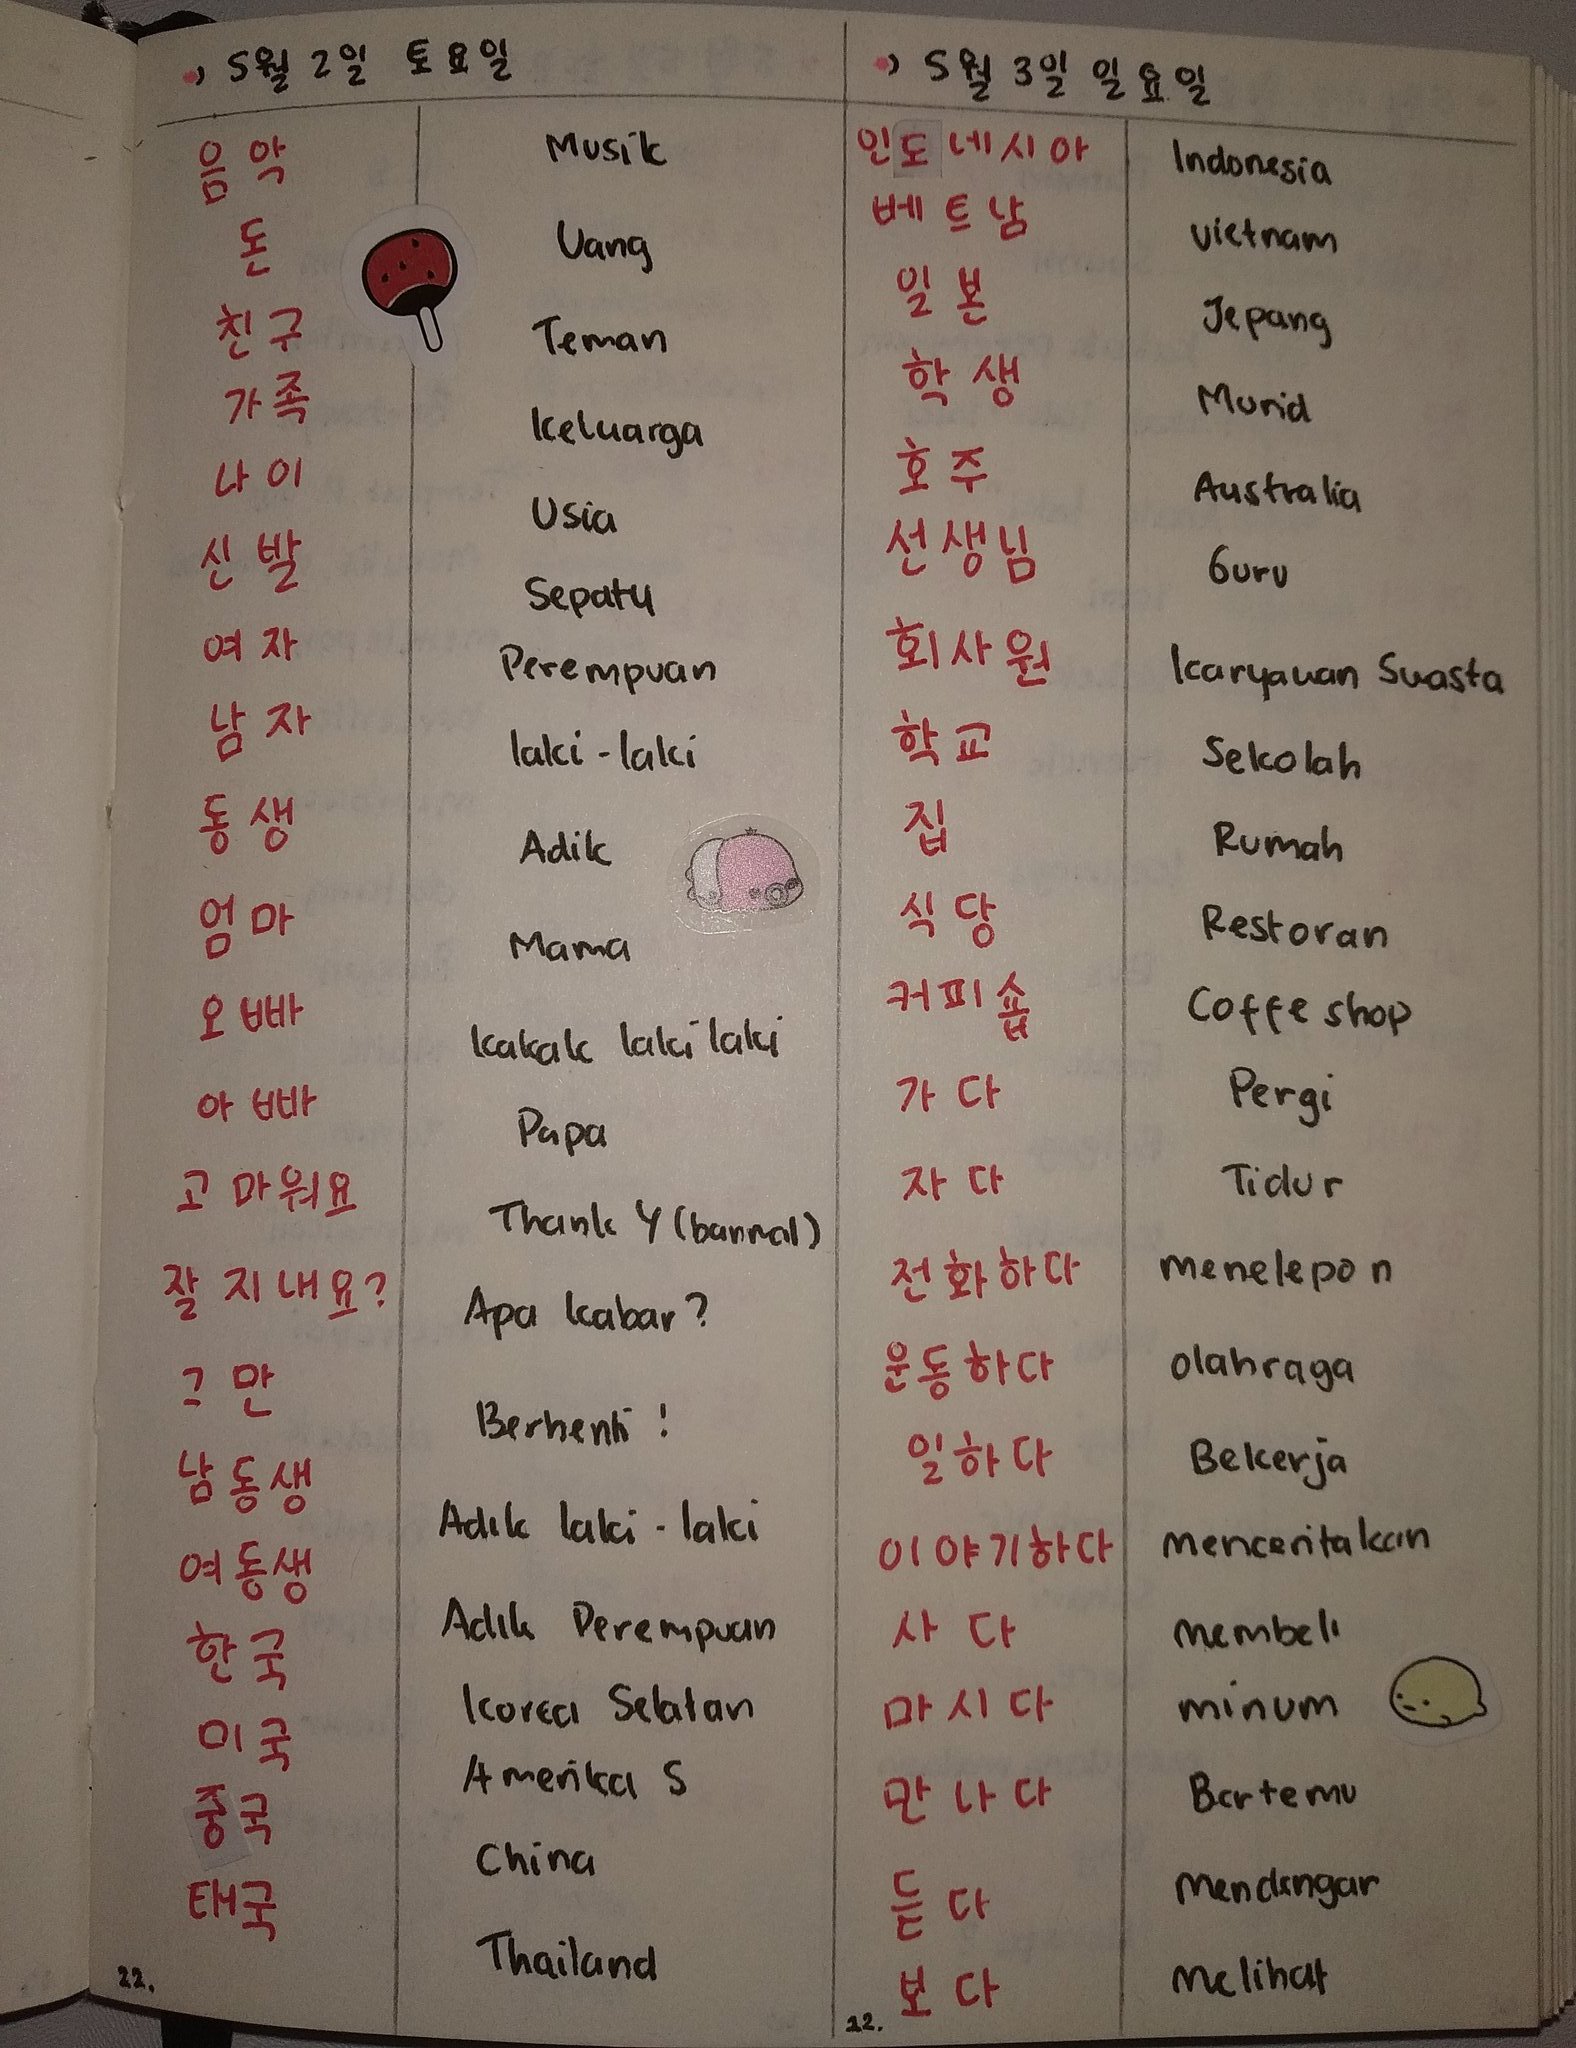 5월 2일 토요일
음악 Musik
돈 Uang
친구 Teman
가족 Keluarga
나이 Usia
신발 Sepatu
여자 Perempuan
남자 laki-laki
동생 Adik
엄마 Mama
오빠 kakak laki laki
아빠 Papa
고마워요 Thank Y (banmal)
잘 지내요? Apa kabar?
그만 Berhenti!
남동생 Adik laki-laki
여동생 Adik Perempuan
한국 Korea Selatan
미국 Amerika S
중국 China
태국 Thailand
22.
5월 3일 일요일
인도네시아 Indonesia
베트남 Vietnam
일본 Jepang
학생 Murid
호주 Australia
선생님 Guru
회사원 Karyawan Swasta
학교 Sekolah
집 Rumah
식당 Restoran
커피숍 Coffe shop
가다 Pergi
자다 Tidur
전화하다 menelepon
운동하다 olahraga
일하다 Bekerja
이야기하다 menceritakan
사다 membeli
마시다 minum
만나다 Bertemu
듣다 mendengar
보다 melihat
12.